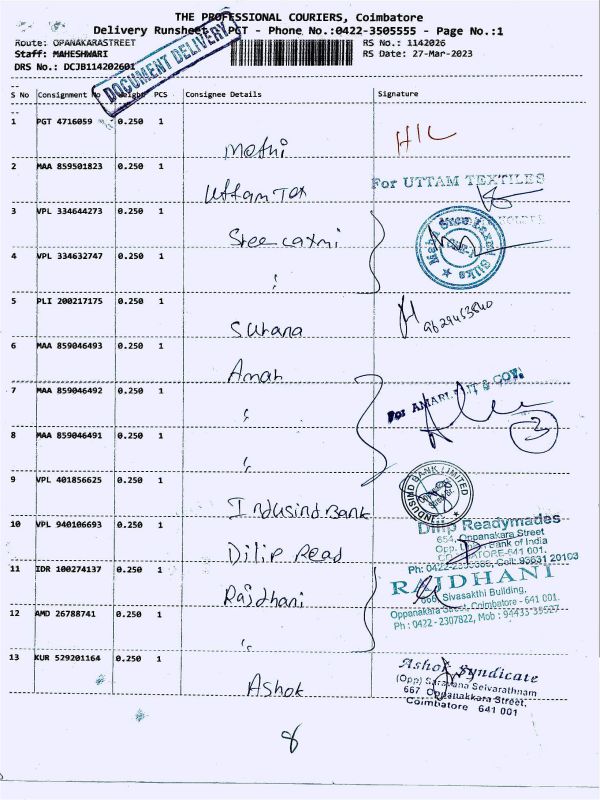 THE PROFESSIONAL COURIERS, Coimbatore
Delivery Runsheet PGT - Phone No.:0422-3505555 - Page No.:1
Route: OPANAKARASTREET RS No.: 1142026
Staff: MAHESHWARI RS Date: 27-Mar-2023
DRS No.: DCJB114202601
DOCUMENT DELIVERY
S No Consignment No Weight PCS Consignee Details Signature
1 PGT 4716059 0.250 1
Mathi
2 MAA 859501823 0.250 1
For UTTAM TEXTILES
Uttam Tex
3 VPL 334644273 0.250 1
Sree Laxmi
4 VPL 334632747 0.250 1
"
5 PLI 200217175 0.250 1
Surana 9629453540
6 MAA 859046493 0.250 1
Aman
7 MAA 859046492 0.250 1
"
3
8 MAA 859046491 0.250 1
"
9 VPL 401856625 0.250 1
INDUSIND BANK LIMITED
Indusind Bank
10 VPL 940106693 0.250 1
Dilip Readymades
654, Oppanakara Street
Bank of India
COIMBATORE-641 001.
Dilip Read
11 IDR 100274137 0.250 1
RAJDHANI
Sivasakthi Building,
Oppanakara Street, Coimbatore - 641 001.
Ph : 0422 - 2307822, Mob :
Rajdhani
12 AMD 26788741 0.250 1
"
13 KUR 529201164 0.250 1
Ashok Syndicate
(Opp) Saravana Selvarathnam
667 Oppanakkara Street,
Coimbatore 641 001
Ashok
8